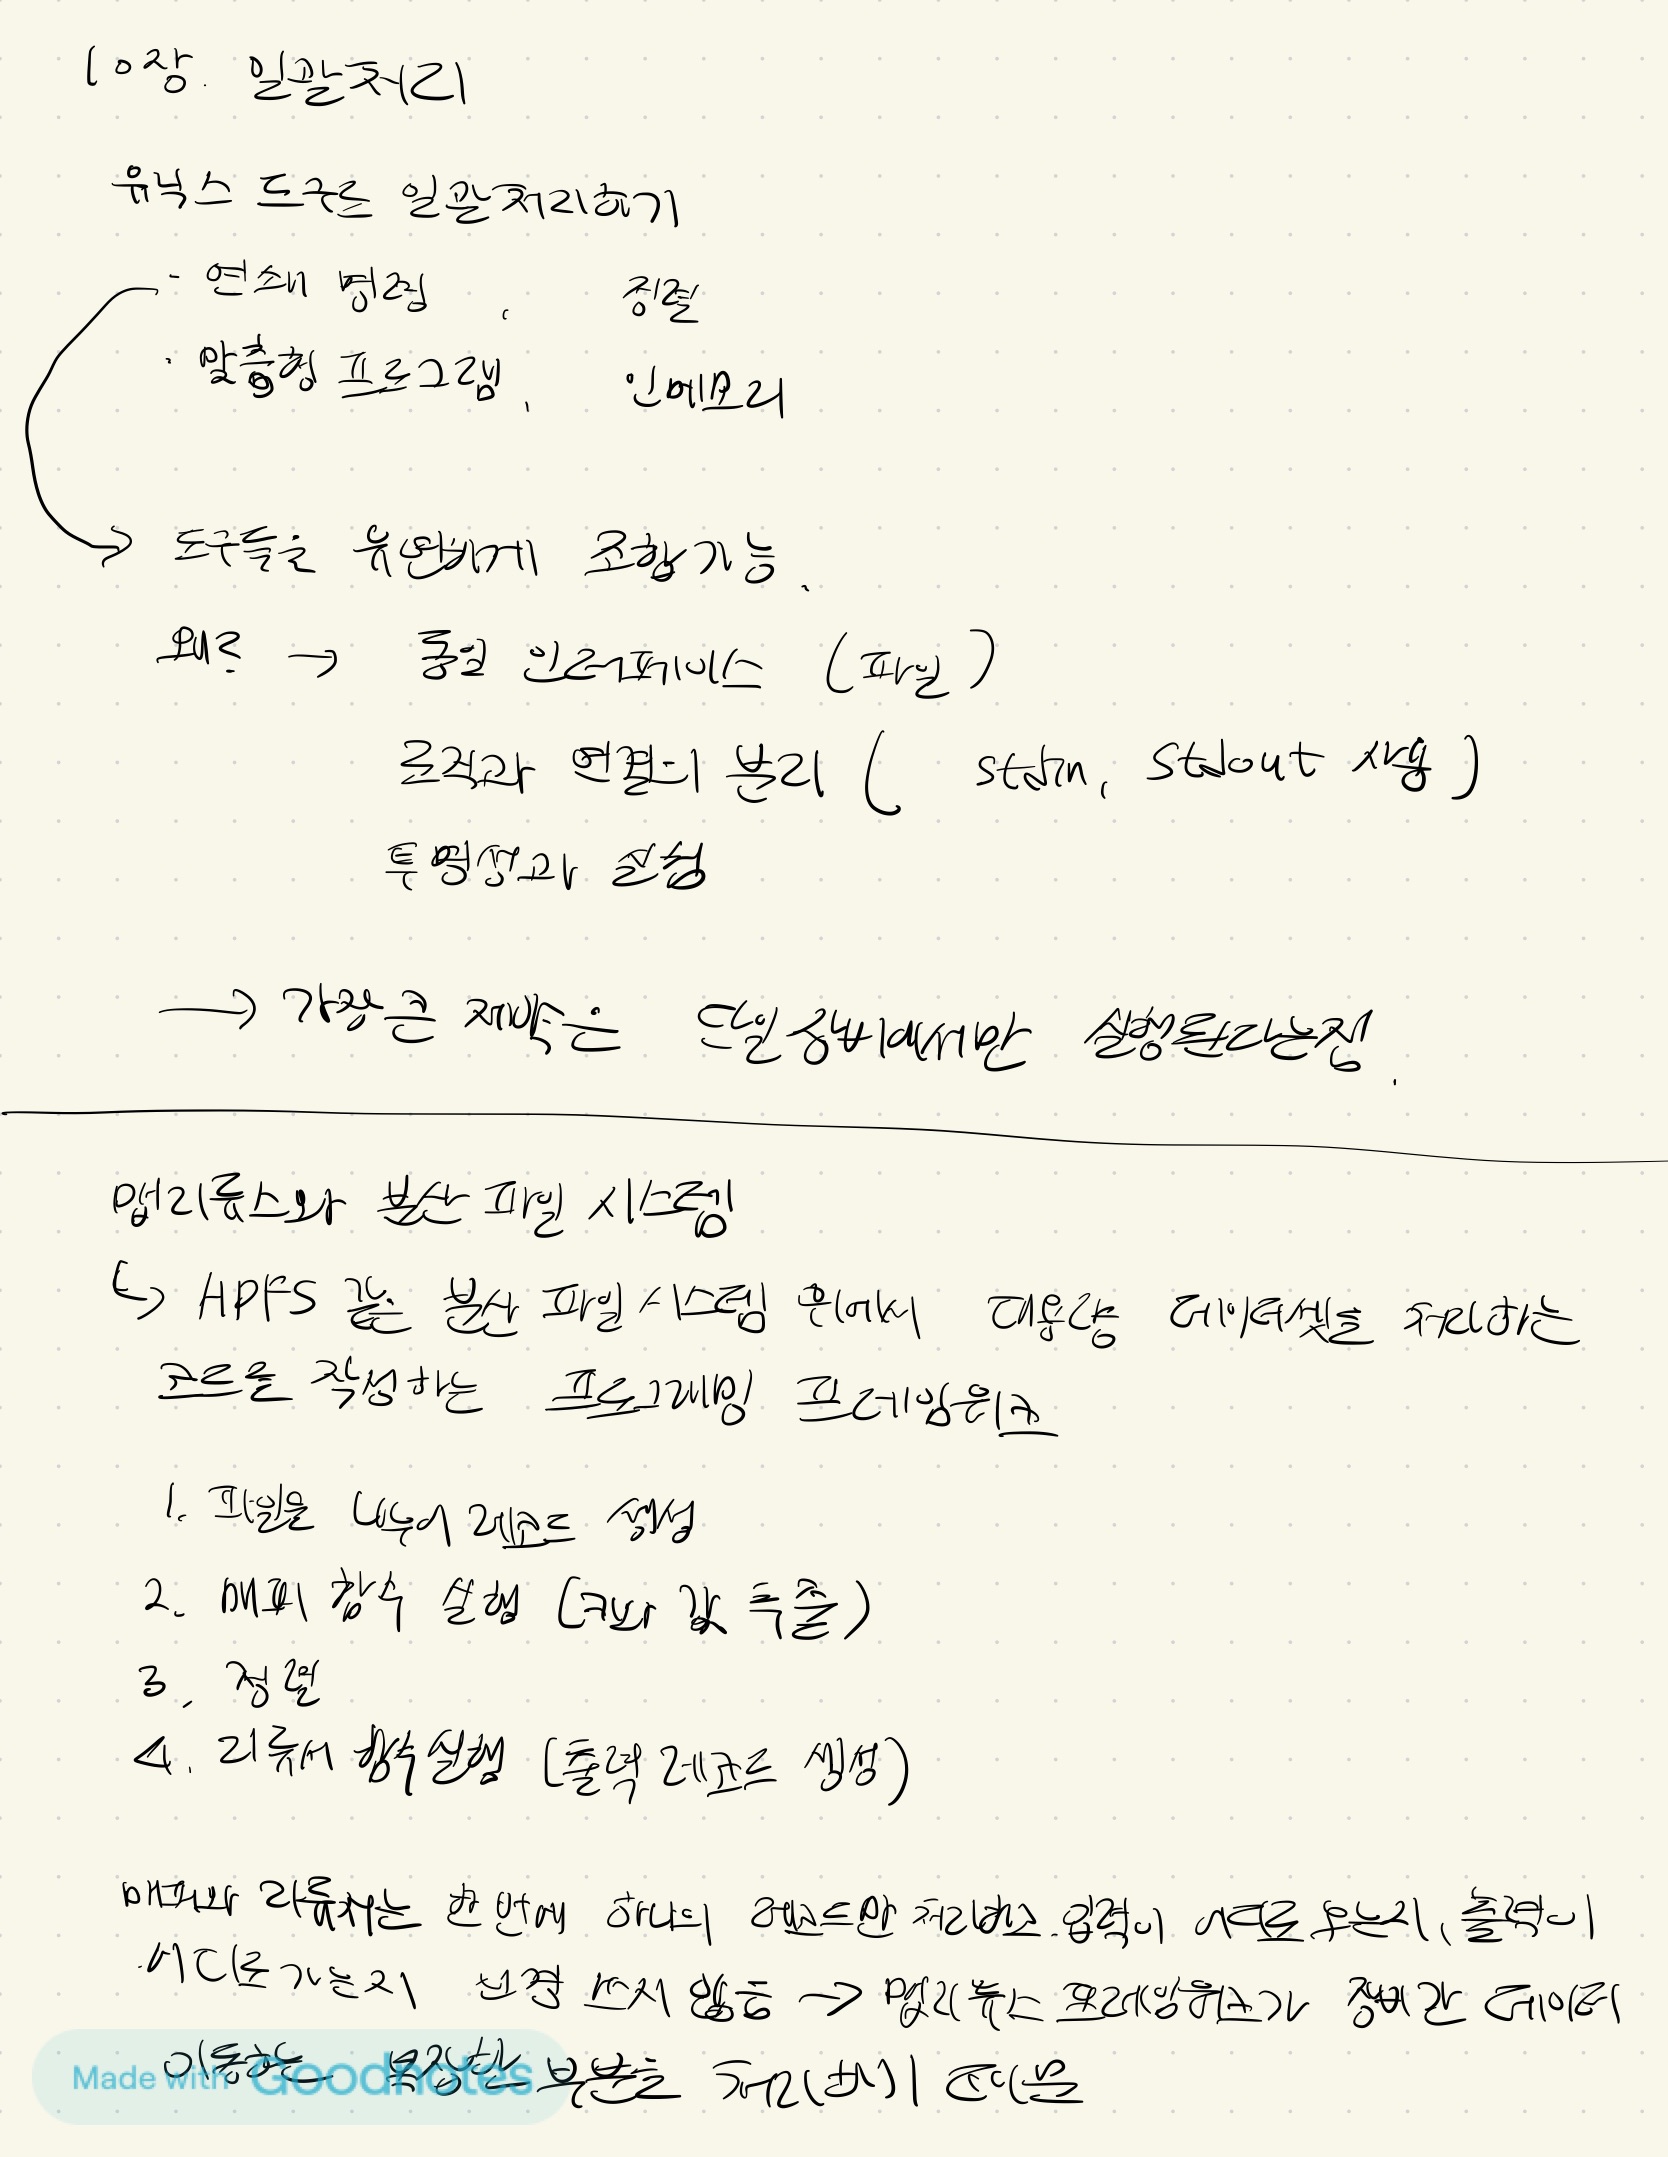 10장. 일괄처리
유닉스 도구로 일괄처리하기
· 연쇄 명령, 정렬
· 맞춤형 프로그램, 인메모리
→ 도구들을 유연하게 조합가능.
왜? → 동일 인터페이스 (파일)
로직과 연결의 분리 ( stdin, stdout 사용 )
투명성과 실험
→ 가장 큰 제약은 단일 장비에서만 실행된다는점.
맵리듀스와 분산 파일 시스템
↳ HDFS 같은 분산 파일 시스템 위에서 대용량 데이터셋을 처리하는
코드를 작성하는 프로그래밍 프레임워크
1. 파일을 나누어 레코드 생성
2. 매퍼 함수 실행 (키와 값 추출)
3. 정렬
4. 리듀서 함수 실행 (출력 레코드 생성)
매퍼와 리듀서는 한 번에 하나의 레코드만 처리하고 입력이 어디로 오는지, 출력이
어디로 가는지 신경 쓰지 않음 → 맵리듀스 프레임워크가 장비 간 데이터
이동하는 복잡한 부분을 처리하기 때문
Made with Goodnotes